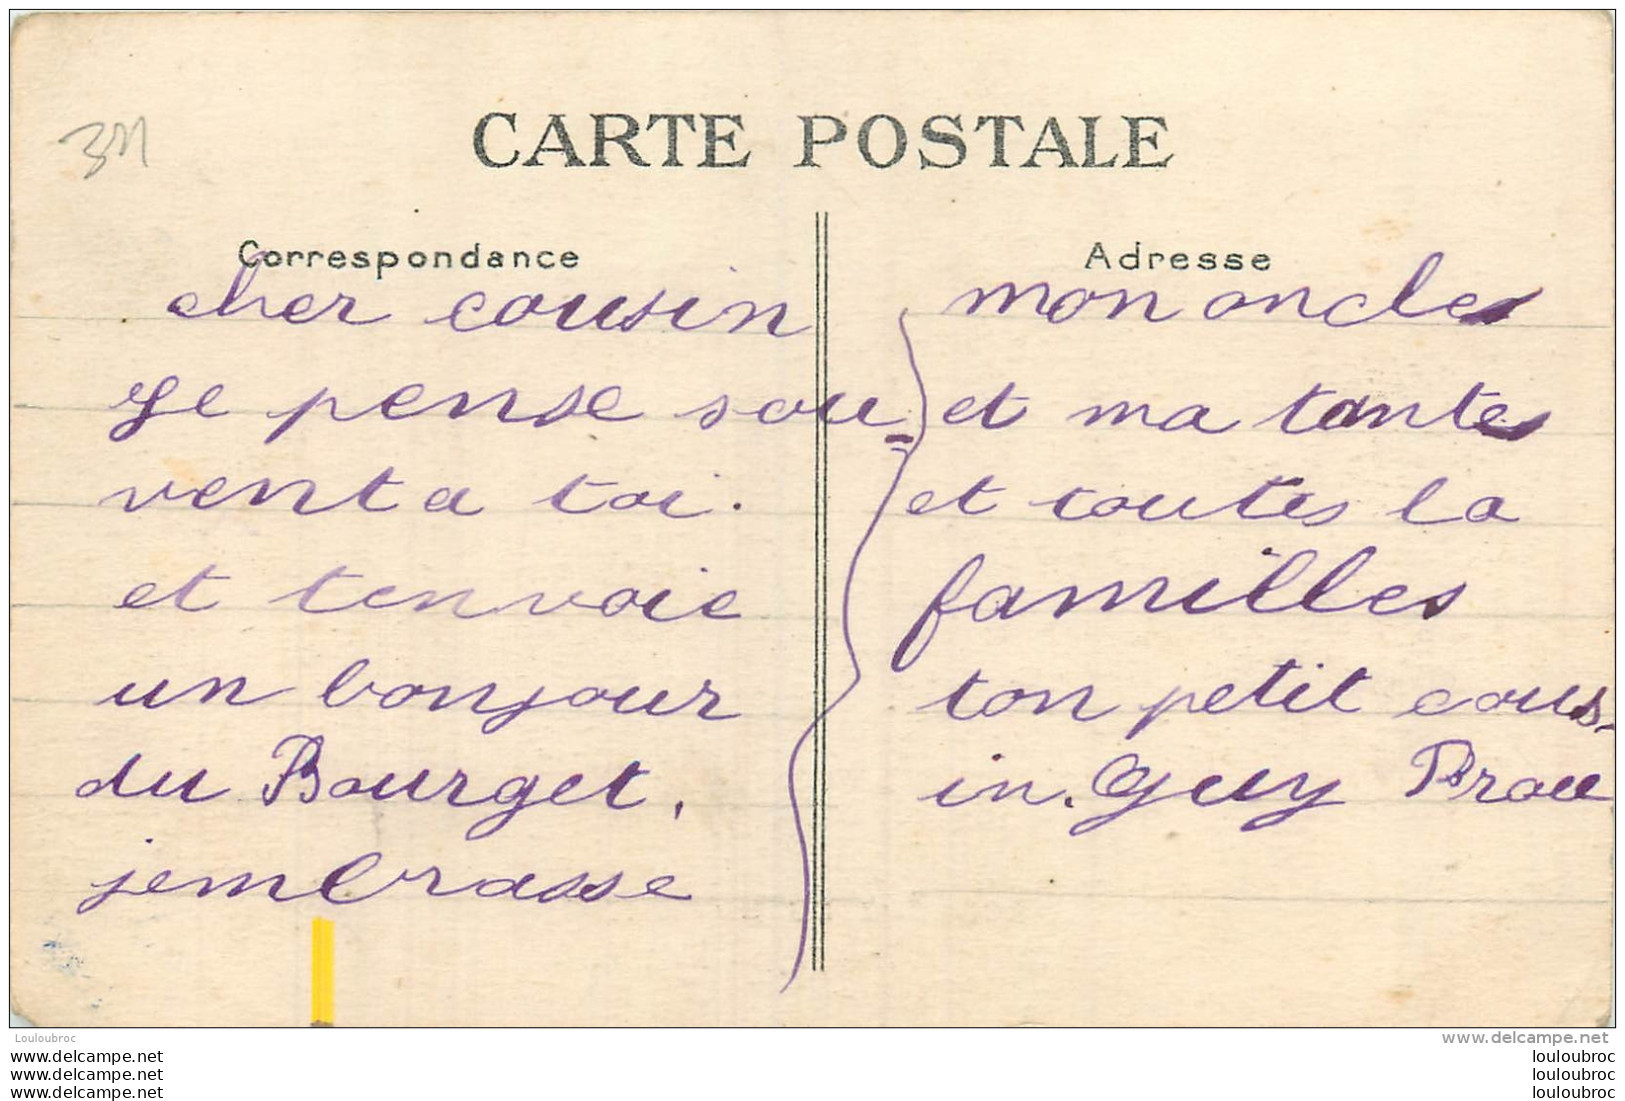 CARTE POSTALE
Correspondance
cher cousin
Je pense sou-
vent a toi.
et tenvoie
un bonjour
du Bourget.
jembrasse
Adresse
mon oncles
et ma tantes
et toutes la
familles
ton petit cous-
in. Guy
Louloubroc
www.delcampe.net
www.delcampe.net
www.delcampe.net
www.delcampe.net
louloubroc
louloubroc
louloubroc